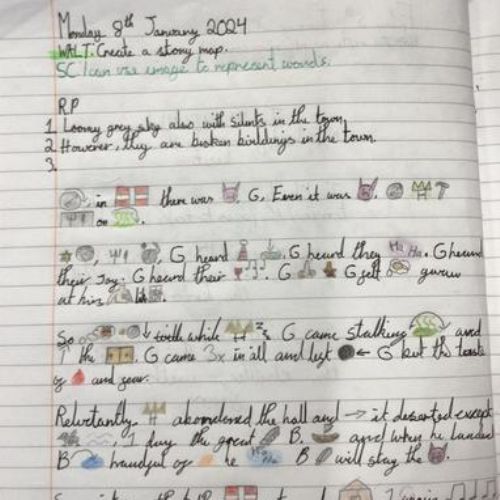 Monday 8th January 2024
WALT: Create a story map.
SC I can use image to represent words.
R.P
1. Loomy grey sky also with silents in the town,
2. However, they are broken buildings in the town.
3.
in there was G, Even it was
on
G heard G heard they Ha Ha. G heard
their Joy. G heard their G G felt
at his
So while Zz G came stalking and
the G came 3x in all and left G but the taste
of and gear.
Reluctantly abandoned the hall and → it deserted except
1 day the great B. and when he landed
B handful of he B will slay the